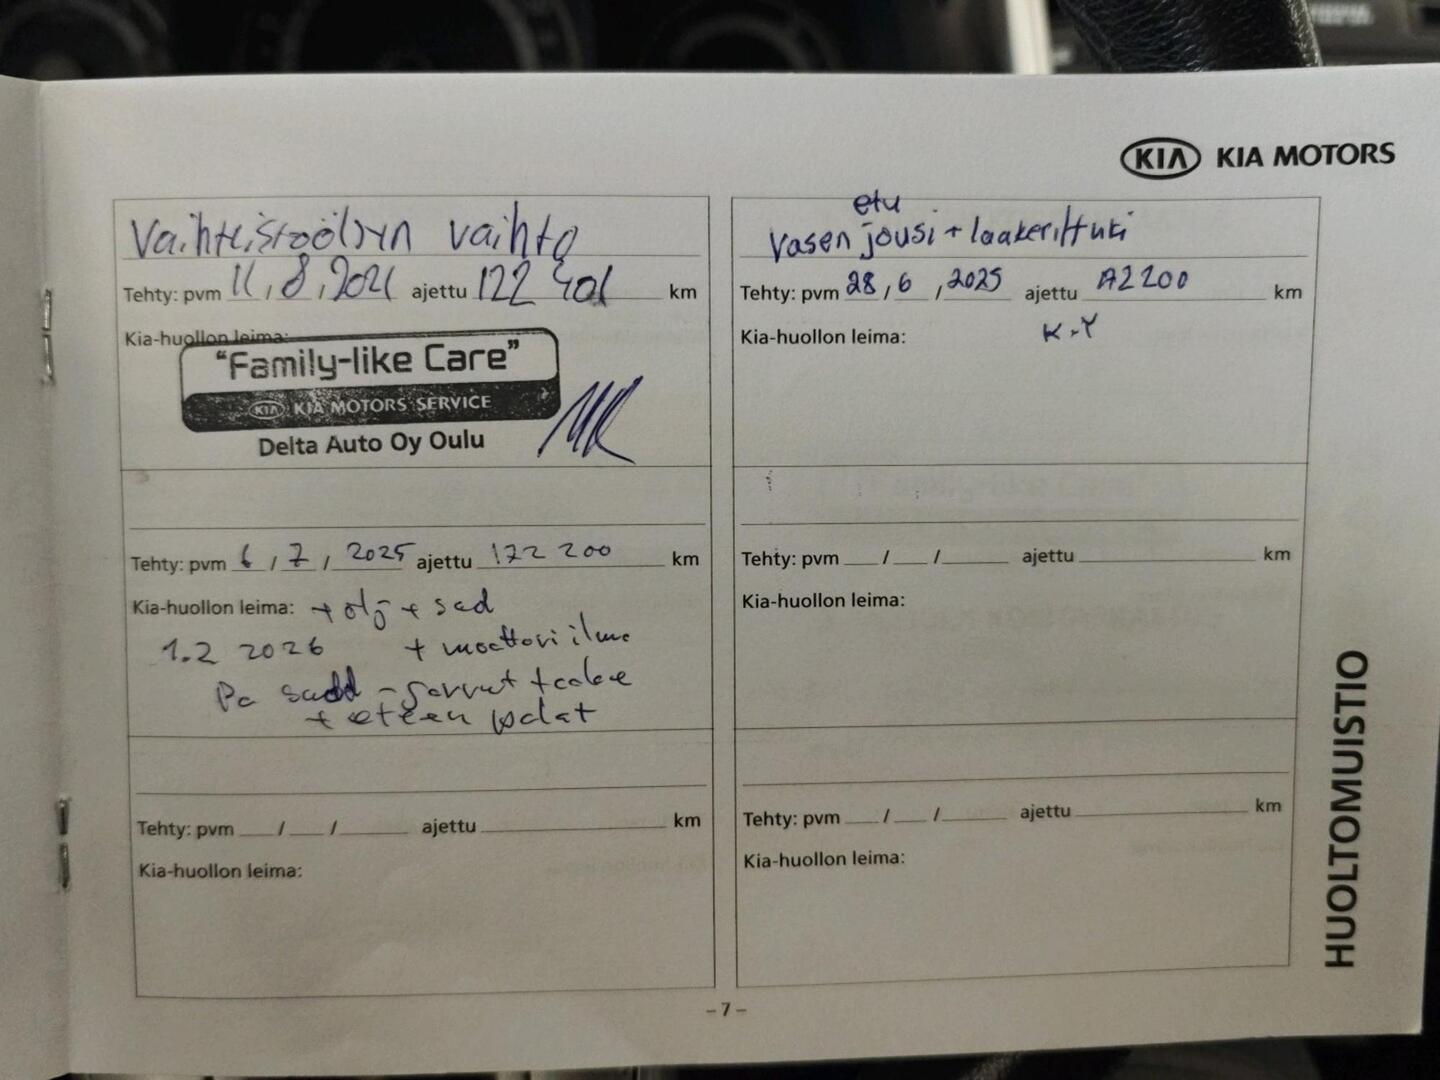 KIA KIA MOTORS
Vaihteistoöljyn vaihto
Tehty: pvm 11, 8, 2021 ajettu 122 401 km
Kia-huollon leima:
"Family-like Care"
KIA KIA MOTORS SERVICE
Delta Auto Oy Oulu
Tehty: pvm 6 / 7 / 2025 ajettu 172 200 km
Kia-huollon leima: + ölj + sad
1.2 2026 + moottori ilma
Pa
+ eteen palat
Tehty: pvm / / ajettu km
Kia-huollon leima:
etu
Vasen jousi + laakerittuki
Tehty: pvm 28 / 6 / 2025 ajettu A2200 km
K.Y
Kia-huollon leima:
Tehty: pvm / / ajettu km
Kia-huollon leima:
Tehty: pvm / / ajettu km
Kia-huollon leima:
HUOLTOMUISTIO
– 7 –